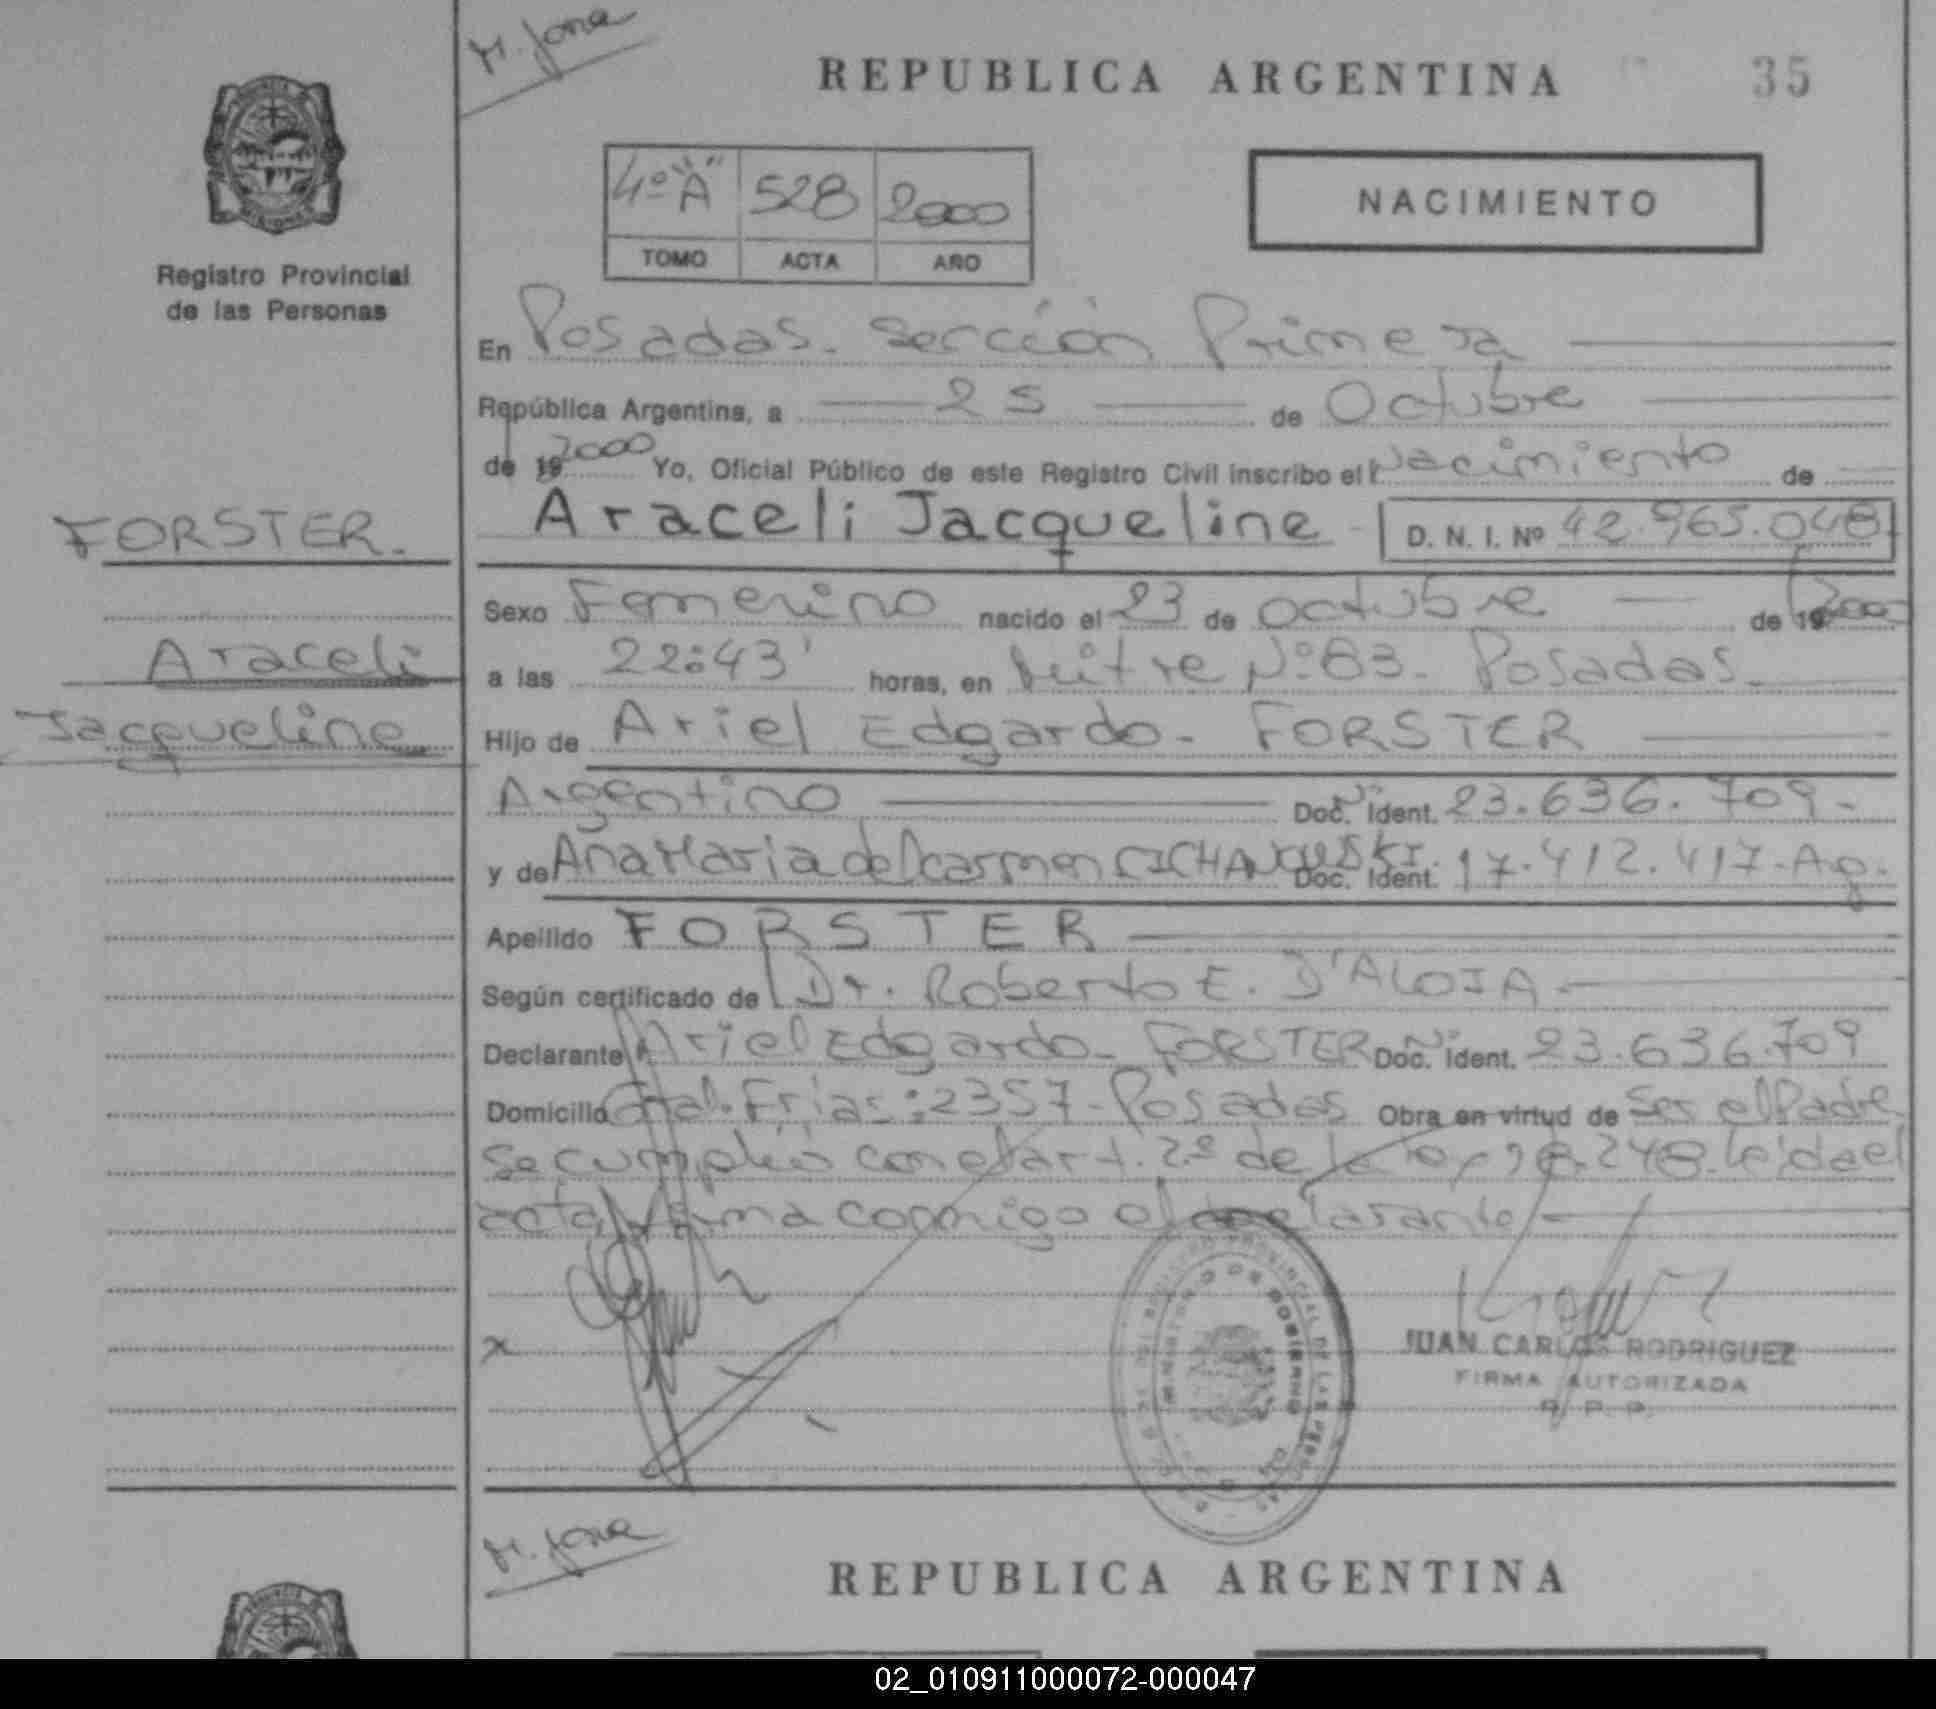 M. Jona
REPUBLICA ARGENTINA 35
4º "A" 528 2000
TOMO ACTA AÑO
NACIMIENTO
Registro Provincial
de las Personas
En Posadas. Sección Primera
República Argentina, a 25 de Octubre
de 19 2000 Yo, Oficial Público de este Registro Civil inscribo el Nacimiento de
FORSTER.
Araceli Jacqueline D. N. I. Nº 42.965.048
Sexo Femenino nacido el 23 de octubre de 19 2000
Araceli
a las 22:43' horas, en Mitre Nº:83. Posadas
Jacqueline
Hijo de Ariel Edgardo - FORSTER
Argentino Doc. Ident. 23.636.709-
y de Ana Maria del Carmen CICHANOWSKI. Doc. Ident. 17.412.417-Ag.
Apellido FORSTER
Según certificado de Dr. Roberto E. D'ALOIA
Declarante Ariel Edgardo - FORSTER Doc. Ident. 23.636.709
Domicilio Gral. Frias: 2357-Posadas Obra en virtud de Ser el Padre
Se cumplió con el art. 2º de la ley 18.248. leída el
acta, firma conmigo el declarante
x
JUAN CARLOS RODRIGUEZ
FIRMA AUTORIZADA
R. P. P.
M. Jona
REPUBLICA ARGENTINA
02_010911000072-000047